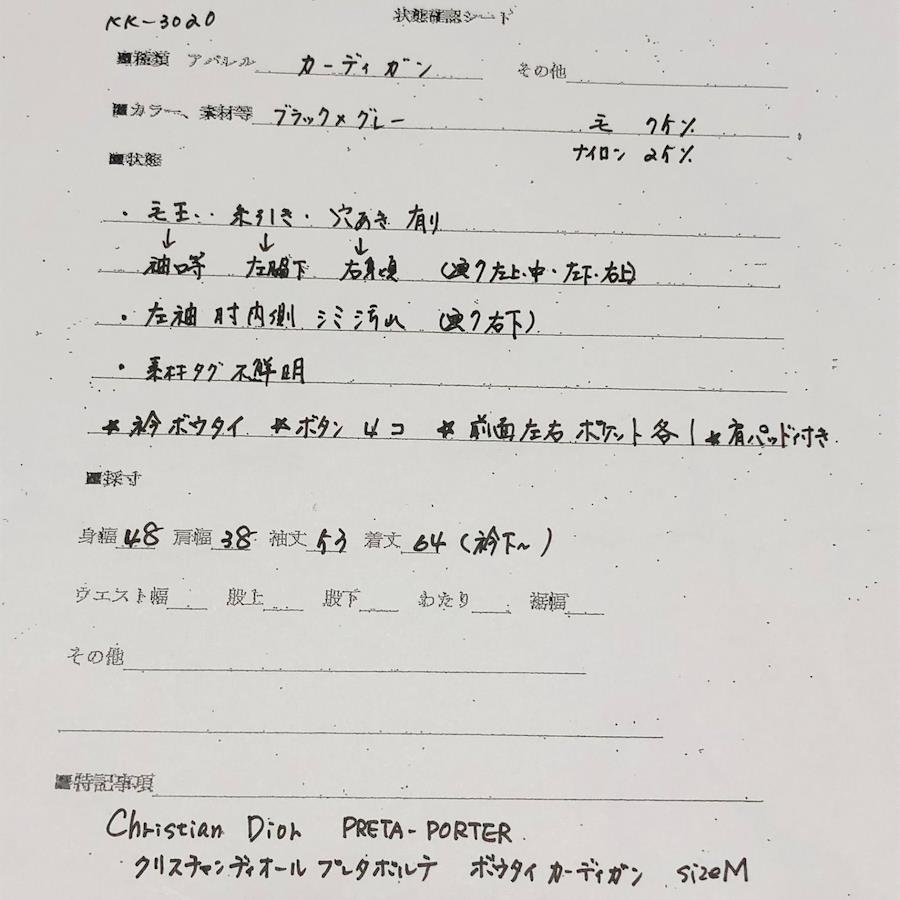 KK-3020
状態確認シート
■種類 アパレル カーディガン その他
■カラー、素材等 ブラック×グレー 毛 75%
ナイロン 25%
■状態
・毛玉・糸引き・穴あき有り
↓ ↓ ↓
袖口等 左脇下 右身頃 (画7左上・中・左下・右上)
・左袖肘内側シミ汚れ (画7右下)
・素材タグ不鮮明
★衿ボウタイ ★ボタン4コ ★前面左右ポケット各1 ★肩パッド付き
■採寸
身幅48 肩幅38 袖丈53 着丈64(衿下~)
ウエスト幅 股上 股下 わたり 裾幅
その他
■特記事項
Christian Dior PRETA-PORTER
クリスチャンディオール プレタポルテ ボウタイカーディガン sizeM